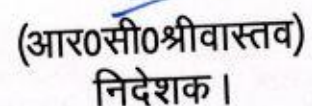 (आर0सी0श्रीवास्तव)
निदेशक।